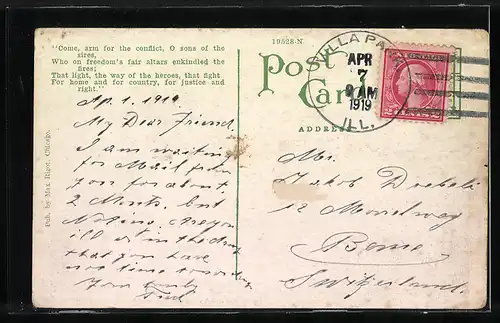 19528-N
"Come, arm for the conflict, O sons of the
sires,
Who on freedom's fair altars enkindled the
fires;
That light, the way of the heroes, that fight
For home and for country, for justice and
right."
Post
Card
ADDRESS
VILLA PARK
APR
7
9 AM
1919
ILL.
Pub. by Max Rigot, Chicago.
Ap. 1. 1919
My Dear Friend.
I am waiting
for Mail from
you for about
2 Month. but
Are you
ill or in the
that you have
not time to
Your
Fred
Mr.
Jakob
12
Berne
Switzerland.